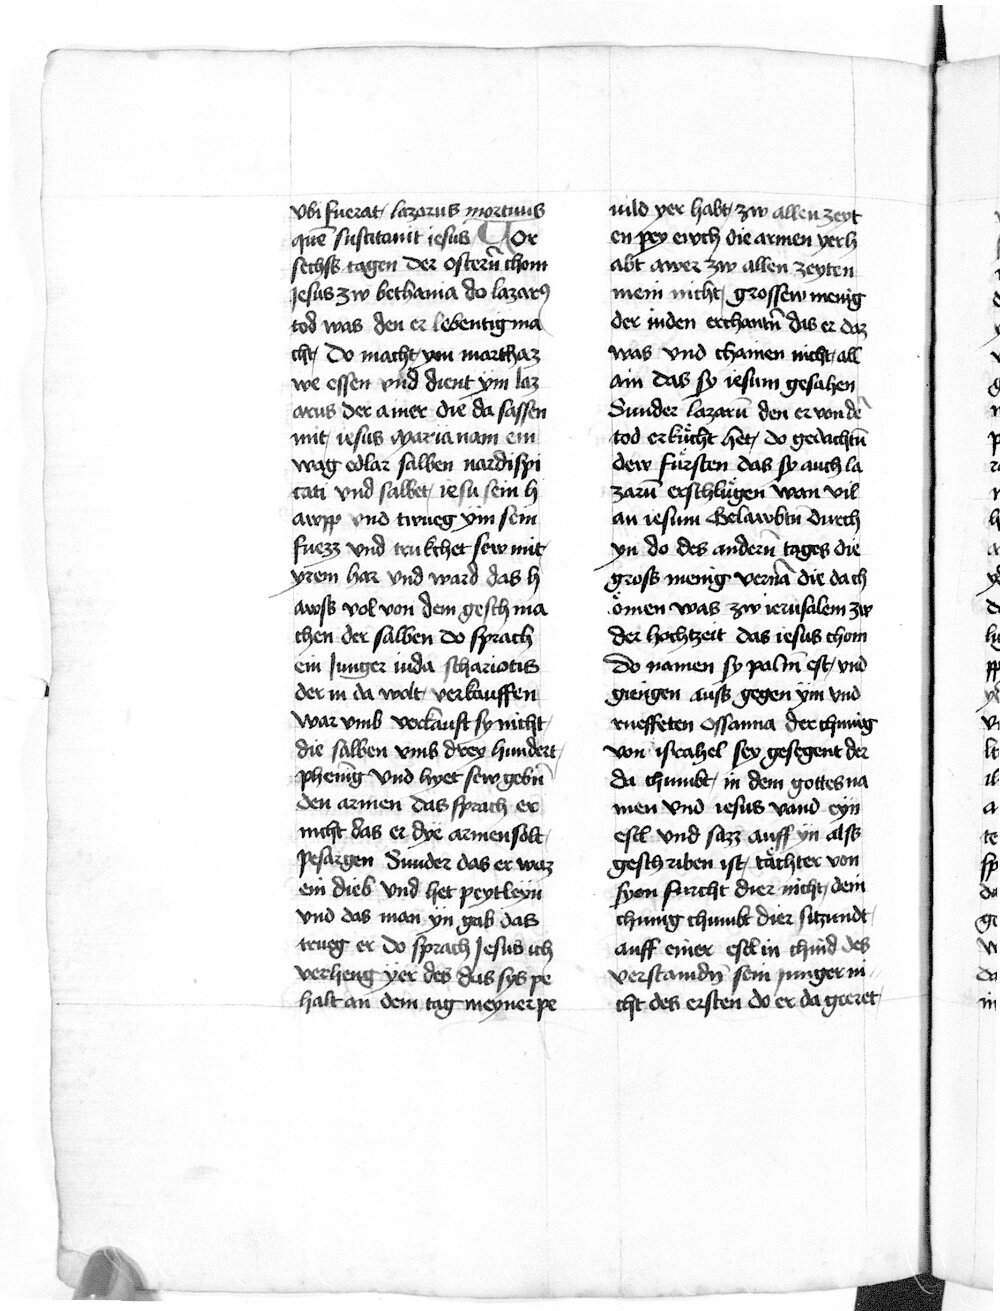 vbi fuerat lazarus mortuus
quē suscitauit iesus Vor
sechss tagen der osterū chom
Jesus zw bethania do lazarꝯ
tod was den er lebentig ma
cht Do macht ym marthaz
we essen vnd dient ÿm laz
arus der ainer die da sassen
mit iesus Maria nam ein
wag edlar salben nardispi
cati vnd salbet iesu sein h
awpp vnd twueg ÿm sein
fuezz vnd trukchet sew mit
yrem har vnd ward das h
awss vol von dem geschma
chen der salben do sprach
ein Junger iuda schariotis
der in da wolt verkauffen
war vmb verkaufft sy nicht
die salben vmb drey hundert
phenīg vnd hyet sew gebn̄
den armen das sprach er
nicht das er dÿe armen solt
pesargen Sunder das er waz
ein dieb vnd het peytleyn
vnd das man ÿn gab das
trueg er do sprach Jesus ich
verheng yer des das sys pe
halt an dem tag meyner pe
vild yer habt zw allen zeyt
en pey ewch die armen yerh
abt awer zw allen zeyten
mein nicht grossew menig
der iuden erchantn̄ das er daz
was vnd chamen nicht all
ain das sy iesum gesahen
Sunder lazarū den er von dē
tod erkücht het do gedachtn̄
dew fürsten das sy auch la
zarū erschlügen wan vil
an iesum Gelawbtn̄ durch
yn do des andern̄ tages die
gross menig vernā die da ch
ömen was zw ierusalem zw
der hochtzeit das iesus chom
Do namen sy palm̄ est vnd
giengen auss gegen ÿm vnd
rueffeten Ossanna der chunig
von israhel sey gesegent der
da chumbt in dem gottes na
men vnd iesus vand eyn
esel vnd sazz auff ÿn alss
geschriben ist tächter von
syon furcht dier nicht dein
chunig chumbt dier sitzundt
auff einer eselin chind des
verstandn̄ sein junger ni
cht des ersten do er da geeret